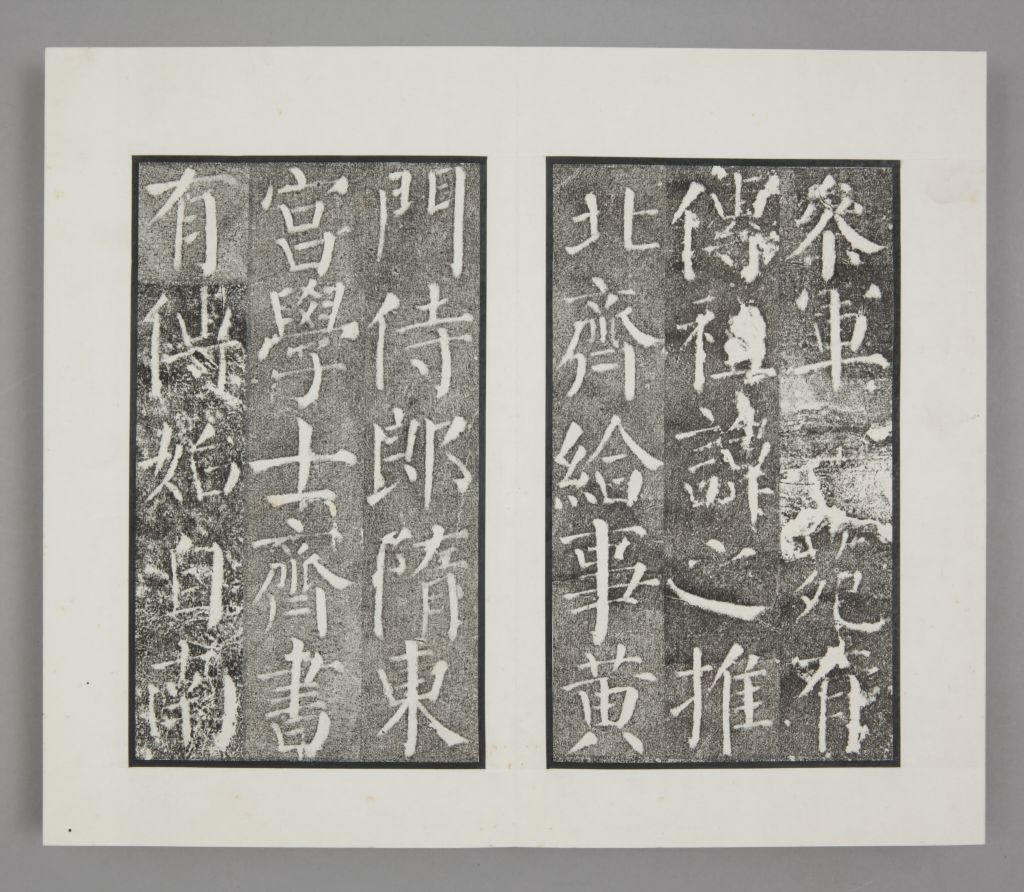 參軍文苑有
傳祖諱之推
北齊給事黃
門侍郎隋東
宮學士齊書
有傳始自南